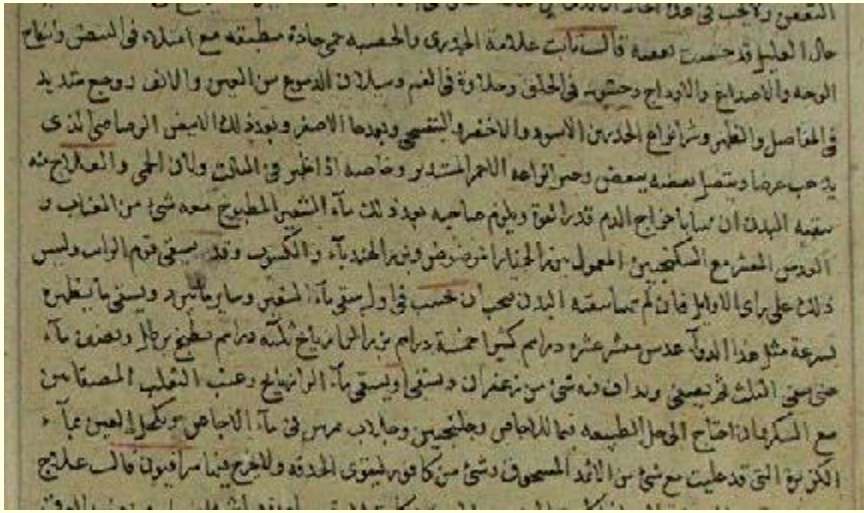 حال العليل قد حصرت بعضه قالت ثابت علامة الجدرى والحصبه حمى حادة مطبقه مع امتلاء فى النبض وانتفاخ
الوجه والاصداغ والاوداج وخشونه فى الحلق وحلاوة فى الفم وسيلان الدموع من العين والانف ووجع شديد
فى المفاصل والظهر وشر انواع الجدرى الاسود والاخضر والبنفسجى وبعدها الاصفر وبعد ذلك الابيض الرصاصى الذى
يذهب عرضا ويتصل بعضه ببعض وخير انواعه الاحمر المستدير وخاصه اذا ظهر فى الثالث ولان الحمى والعلاج منه
تنقيه البدن ان تهيأ باخراج الدم قدر القوة ويلزم صاحبه بعد ذلك مآء الشعير المطبوخ معه شئ من العناب و
العدس المقشر مع السكنجبين المعمول ببزر الخيار المرضوض وبزر الهندبآء و الكشوث وقد يسقى قوم الرايب وليس
ذلك على راى الاوايل فان لم تتهيا تنقيه البدن فيجب ان يسقى مآء الشعير وساير ما يبرد ويسقى ما يظهره
بسرعة مثل هذا الدوآء عدس مقشر عشره دراهم كثيرا خمسة دراهم بزر الرازيانج ثلثه دراهم يطبخ برطل ونصف مآء
حتى يبقى الثلث ثم يصفى ويداف فيه شئ من زعفران ويسقى او يسقى مآء الرازيانج وعنب الثعلب المصفا من
مع السكر فان احتاج الى حل الطبيعه فبماء الاجاص وجلنجبين وجلاب مرس فى مآء الاجاص ويكحل العين بمآء
الكزبرة التى قد عليت مع شئ من الاثمد المسحوق وشئ من كافور فيقوى الحدقه ولا يخرج فيها سرافيون قالت علاج